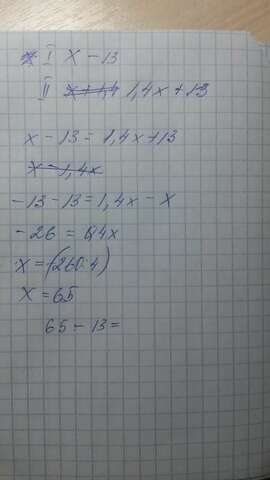 I x - 13
II x + 1,4 1,4x + 13
x - 13 = 1,4x + 13
x - 1,4x
-13 - 13 = 1,4x - x
-26 = 0,4x
x = -(260:4)
x = 65
65 - 13 =